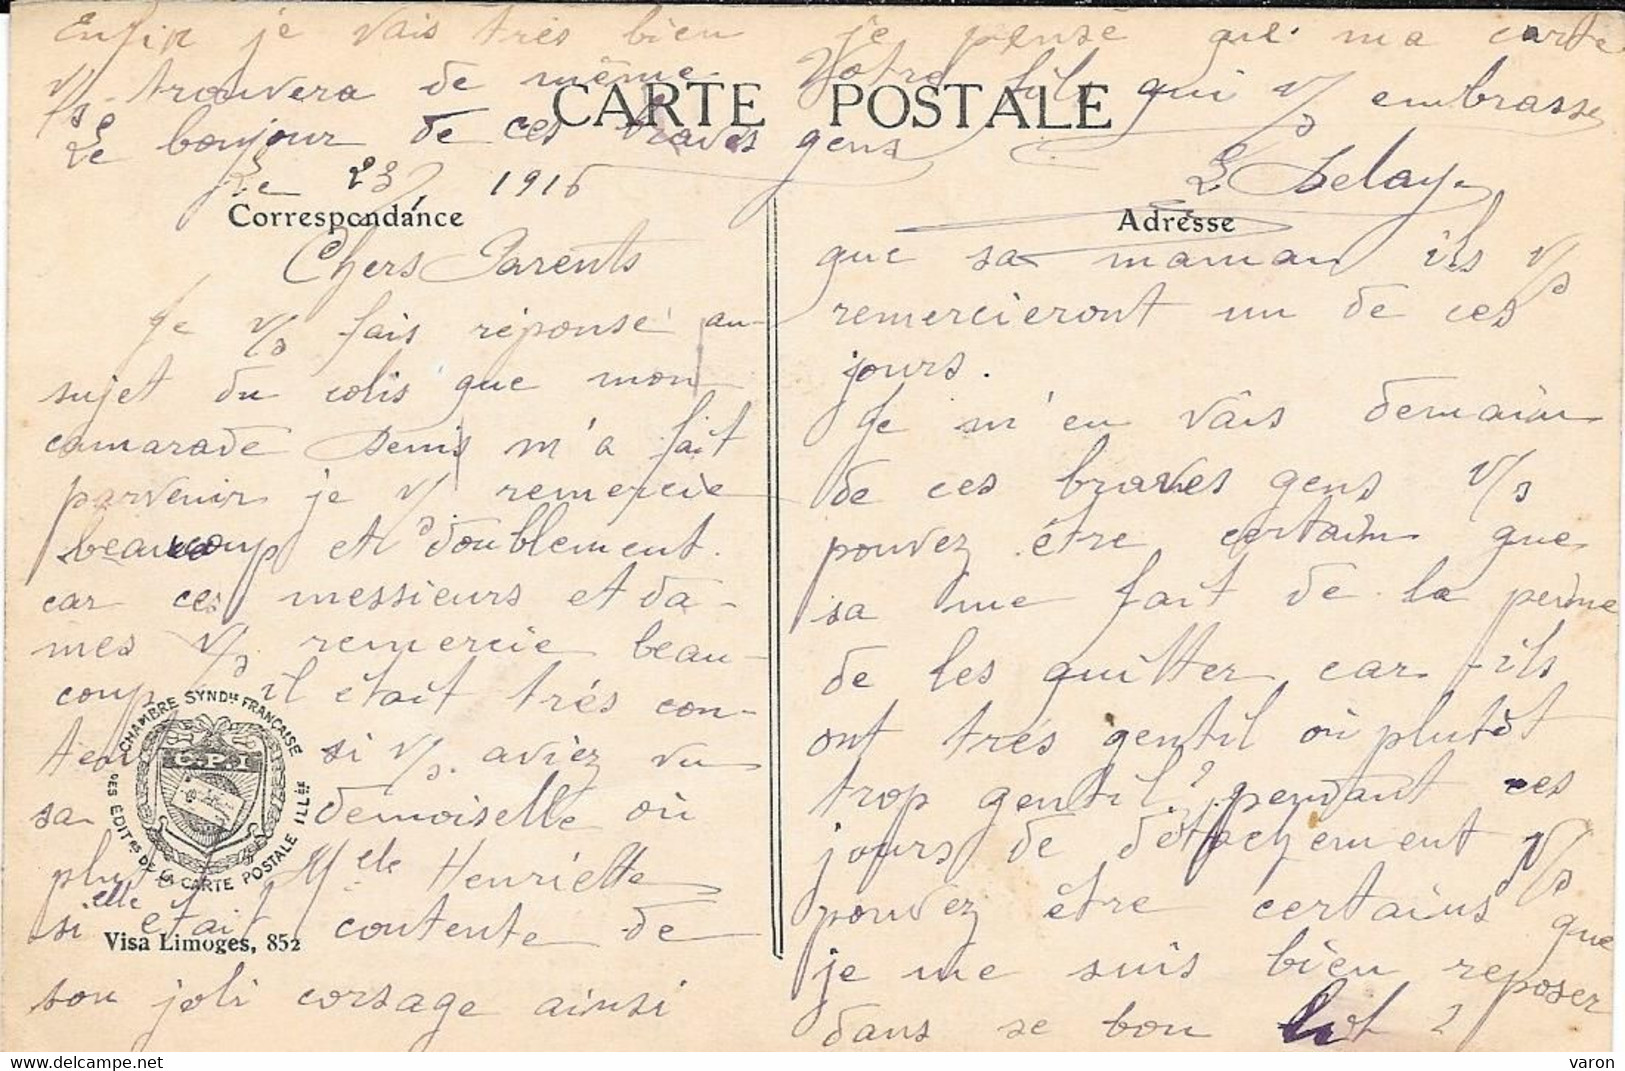 Enfin je vais très bien je pense que ma carte
v/s trouvera de même Votre fils qui v/s embrasse
CARTE POSTALE
Le bonjour de ces braves gens
L Delay
Le 23/ 1916
Correspondance
Adresse
Chers Parents
Je v/s fais réponse au
sujet du colis que mon
camarade Denis m'a fait
parvenir je v/s remercie
beaucoup et doublement.
car ces messieurs et da-
mes v/s remercie beau-
coup il était trés con-
si v/s aviez vu
sa demoiselle où
Melle Henriette
si elle était contente de
son joli corsage ainsi
CHAMBRE SYNDle FRANÇAISE
C.P.I
DES EDITrs DE LA CARTE POSTALE ILLée
Visa Limoges, 852
que sa maman ils v/s
remercieront un de ces
jours.
Je m'en vâis demain
de ces braves gens v/s
pouvez être certain que
sa me fait de la peine
de les quitter car ils
ont trés gentil où plutôt
trop gentil? pendant ces
jours de détachement v/s
pouvez être certains que
je me suis bien reposer
dans se bon lit
varon